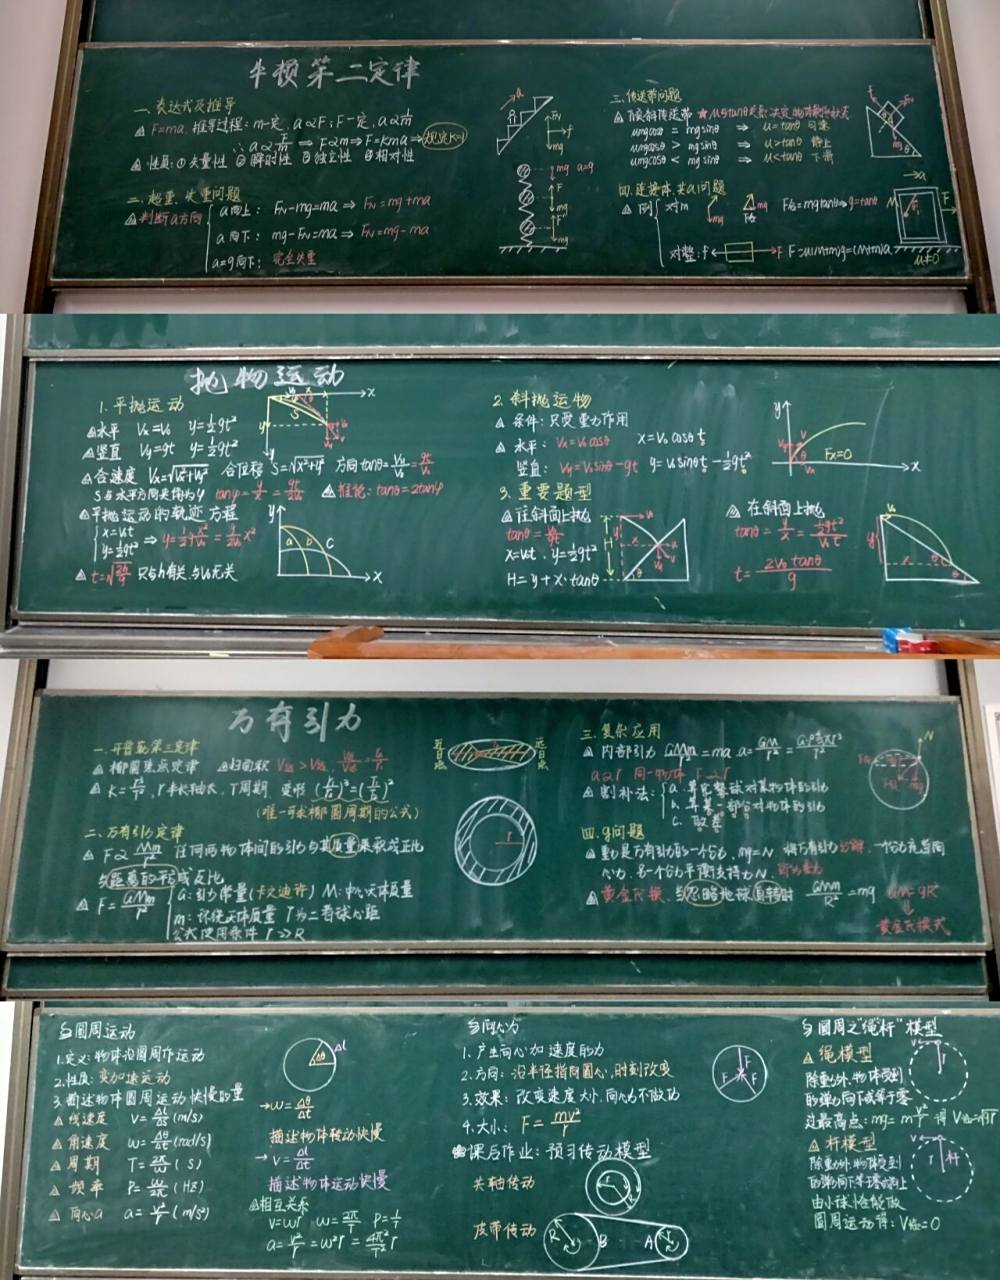 牛顿第二定律
一、表达式及推导
△ F=ma 推导过程: m一定, a∝F; F一定, a∝1/m
∴ a∝F/m ⇒ F∝ma ⇒ F=kma ⇒ 规定K=1
△ 性质: ① 矢量性 ② 瞬时性 ③ 独立性 ④ 相对性
二、超重、失重问题
△ 判断a方向
a向上: FN-mg=ma ⇒ FN=mg+ma
a向下: mg-FN=ma ⇒ FN=mg-ma
a=g向下: 完全失重
三、传送带问题
△ 倾斜传送带 ★ μ与tanθ关系决定物体最终状态
μmgcosθ = mgsinθ ⇒ μ=tanθ 匀速
μmgcosθ > mgsinθ ⇒ μ>tanθ 静止
μmgcosθ < mgsinθ ⇒ μ<tanθ 下滑
四、连接体、共a问题
△ 例
对m F合=mgtanθ
对整: f F F-μ(M+m)g=(M+m)a
μ≠0
抛物运动
1. 平抛运动
△ 水平 Vx=V0 y=½gt²
△ 竖直 Vy=gt y=½gt²
△ 合速度 Vx=√(Vx²+Vy²) 合位移 S=√(x²+y²) 方向tanθ=Vy/V0=gt/V0
S与水平方向夹角为φ tanφ=y/x=gt/2V0 △ 推论: tanθ=2tanφ
△ 平抛运动的轨迹方程
x=V0t
y=½gt² ⇒ y=½g x²/V0²=g/2V0² x²
△ t=√(2h/g) 只与h有关, 与V0无关
a b C
2. 斜抛运物
△ 条件: 只受重力作用
△ 水平: Vx=V0cosθ x=V0cosθt
竖直: Vy=V0sinθ-gt y=V0sinθt-½gt²
Fx=0
3. 重要题型
△ 往斜面上抛
tanθ=V0/gt
x=V0t, y=½gt²
H=y+x·tanθ
△ 在斜面上抛
tanθ=y/x=½gt²/V0t
t=2V0tanθ/g
万有引力
一、开普勒第三定律
△ 椭圆焦点定律 △ 扫面积
△ K=r³/T², r半长轴长, T周期, 变形
(唯一可求椭圆周期的公式)
近日点
远日点
二、万有引力定律
△ F∝Mm/r² 任何两物体间的引力与其质量乘积成正比
与距离的平方成反比
△ F=GMm/r²
G: 引力常量(卡文迪许) M: 中心天体质量
m: 环绕天体质量 r为二者球心距
公式使用条件 r≫R
三、复杂应用
△ 内部引力 GMm/r²=ma
a∝r 同一物体 F∝r
△ 割补法:
a. 算完整球对某物体的引力
b. 算某一部分对物体的引力
c. 做差
四、g问题
△ 重力是万有引力的一个分力, mg=N
心力, 另一个分力平衡支持力N
△ 黄金代换, 当忽略地球自转时 GMm/R²=mg GM=gR²
黄金代换式
与圆周运动
1.定义: 物体沿圆周作运动
2.性质: 变加速运动
3.描述物体圆周运动快慢的量
△ 线速度 V=Δl/Δt (m/s)
△ 角速度 ω=Δθ/Δt (rad/s)
△ 周期 T=2π/ω (S)
△ 频率 P=ω/2π (HZ)
△ 向心a a=v²/r (m/s²)
Δθ Δl
→ω=Δθ/Δt
描述物体转动快慢
→V=Δl/Δt
描述物体运动快慢
△相互关系
V=ωr ω=2π/T P=1/T
a=v²/r=ω²r=4π²/T² r
与向心力
1.产生向心加速度的力
2.方向: 沿半径指向圆心, 时刻改变
3.效果: 改变速度大小, 向心力不做功
4.大小: F=mv²/r
课后作业: 预习传动模型
共轴传动
皮带传动
R B A r
与圆周之"绳杆"模型
△ 绳模型
除重力外, 物体受到
的弹力向下或等于零
过最高点: mg=mv²/r 得 V临=√gr
△ 杆模型
除重力外物体受到
的弹力向下、等于零、向上
由小球恰能做
圆周运动得: V临=0
r 杆